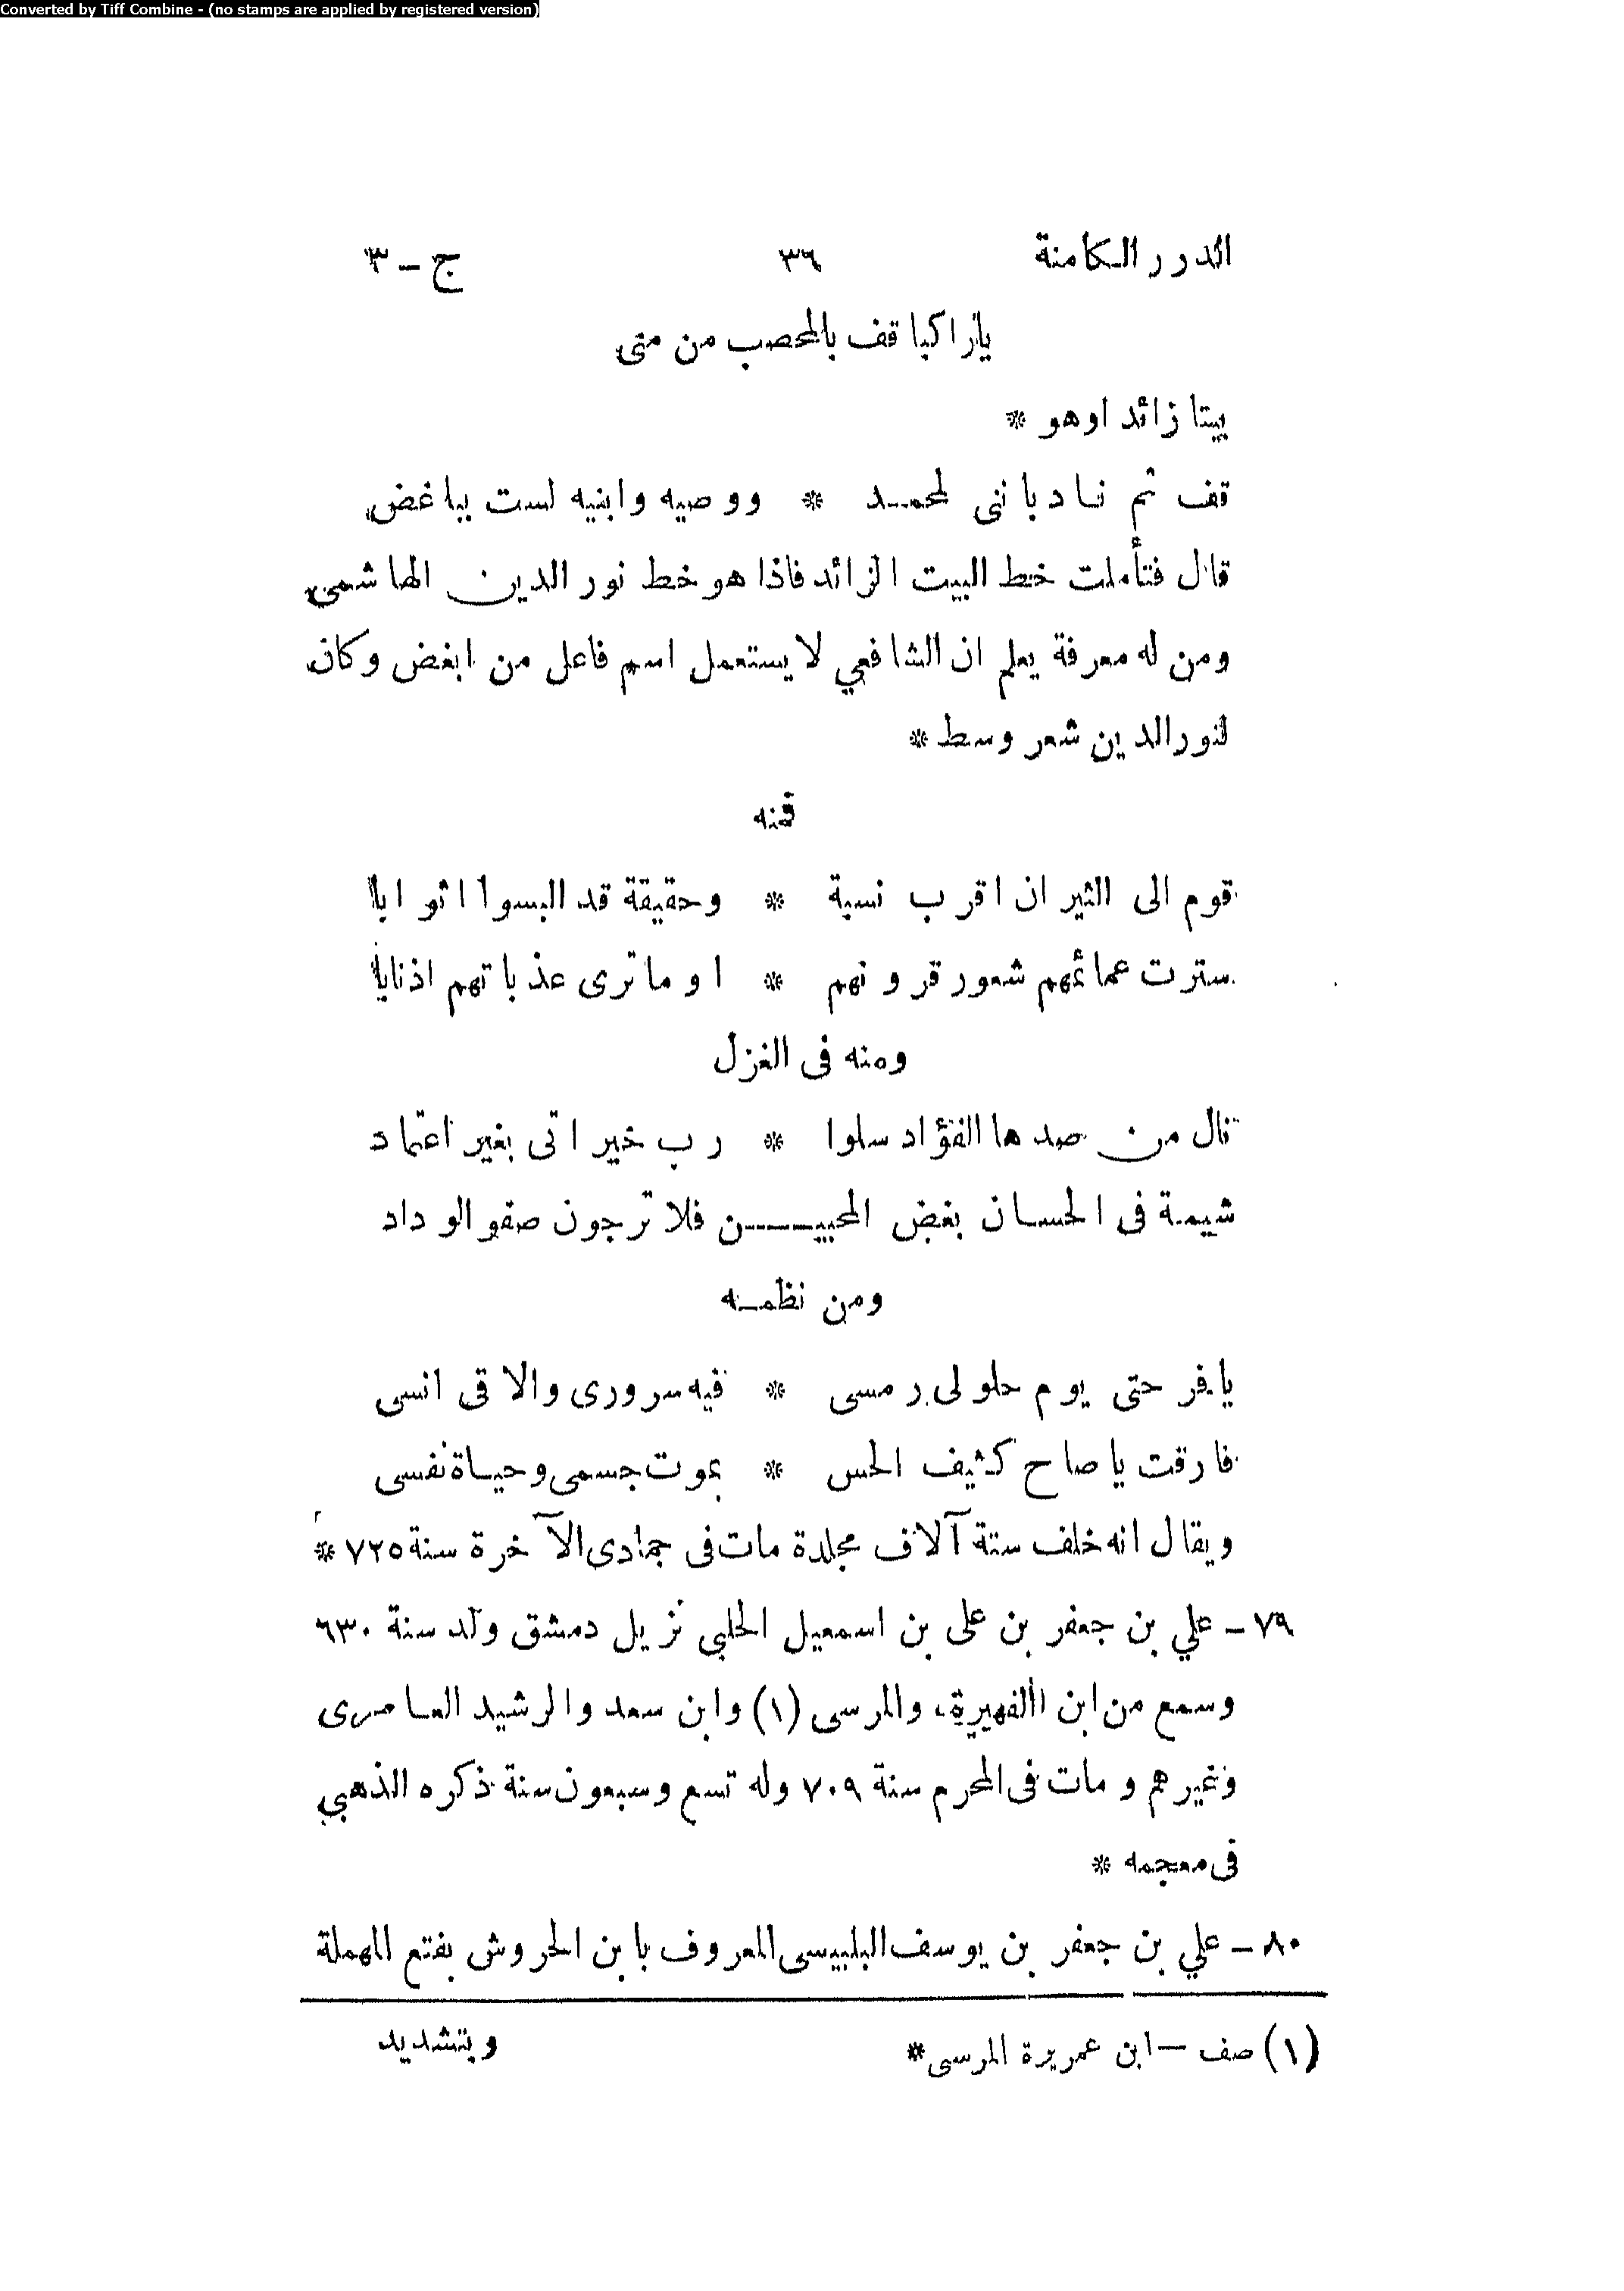 Converted by Tiff Combine - (no stamps are applied by registered version)
الدرر الكامنة ٣٦ ج – ٣
يا راكبا قف بالمحصب من منى
بيتا زائدا وهو *
قف ثم ناد باننى لمحمد * ووصيه وابنيه لست بباغض
قال فتأملت خط البيت الزائد فاذا هو خط نور الدين الهاشمي
ومن له معرفة يعلم ان الشافعي لا يستعمل اسم فاعل من ابغض وكان
لنور الدين شعر وسط *
فمنه
قوم الى الثيران اقرب نسبة * وحقيقة قد البسوا اثوابا
سترت عمائمهم شعور قرونهم * او ما ترى عذباتهم اذنابا
ومنه فى الغزل
نال من صدها الفؤاد سلوا * رب خير اتى بغير اعتماد
شيمة فى الحسان بغض المحبيـــن فلا ترجون صفو الوداد
ومن نظمه
يا فرحتى يوم حلولى رمسى * فيه سرورى والاقى انسى
فارقت يا صاح كثيف الحس * بموت جسمى وحياة نفسى
ويقال انه خلف ستة آلاف مجلدة مات فى جمادى الآخرة سنة ٧٢٥ *
٧٩ – علي بن جعفر بن على بن اسمعيل الحلبي نزيل دمشق ولد سنة ٦٣٠
وسمع من ابن الفهيرة، والمرسى (١) وابن سعد والرشيد العامرى
وغيرهم ومات فى المحرم سنة ٧٠٩ وله تسع وسبعون سنة ذكره الذهبي
فى معجمه *
٨٠ – علي بن جعفر بن يوسف البلبيسى المعروف بابن الحروش بفتع المهملة
(١) صف – ابن عمريرة المرسى *
وبتشديد